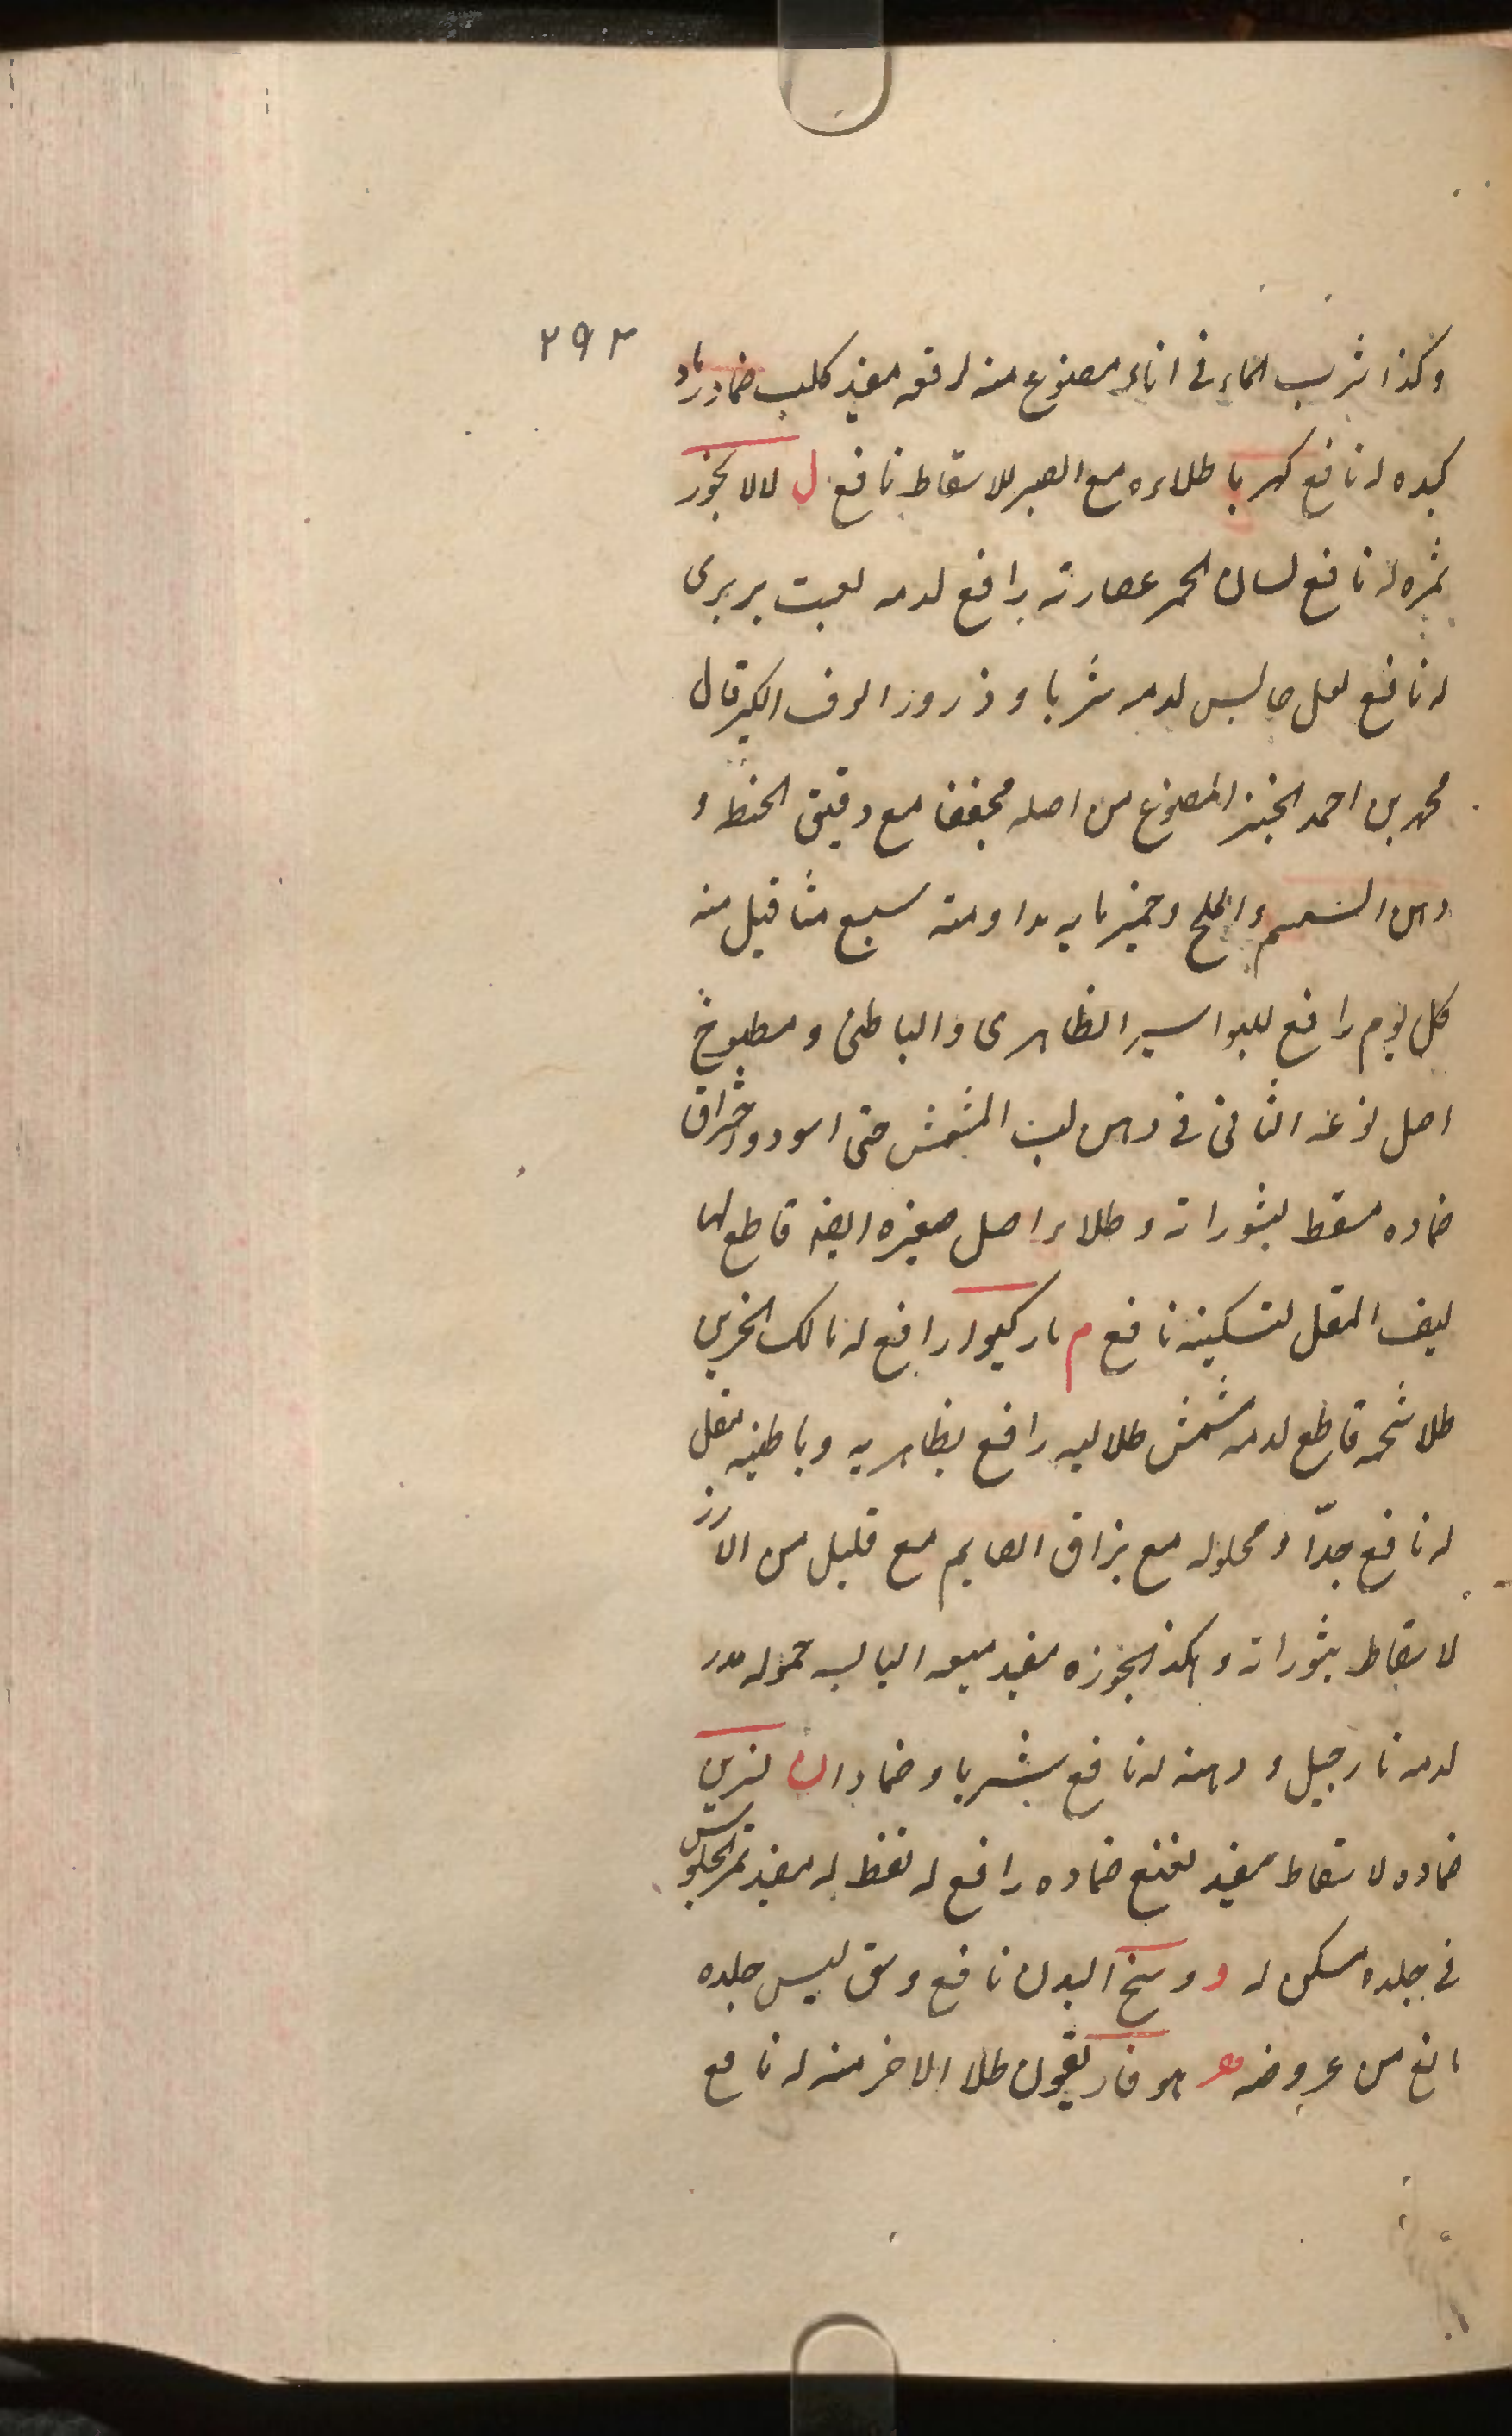 ٢٩٢
وكذا شرب الماء فى اناء مصنوع منه لرفعه مفيد كلب ضماد رماد
كبده له نافع كهربا طلاءه مع الصبر للاسقاط نافع ل لالا بخور
ثمره له نافع لسان الحمر عصارته رافع لدمه لعبت بربرى
له نافع لعل حابس لدمه شربا و ذرورا لوف الكبير قال
محمد بن احمد الخبز المصنوع من اصله مجففا مع دقيق الحنطه و
دهن السمسم والملح وخميرمايه مداومته سبع مثاقيل منه
كل يوم رافع للبواسير الظاهرى والباطنى ومطبوخ
اصل نوعه الثانى فى دهن لب المشمش حتى اسود و
ضماده مسقط لبثوراته و طلاء اصل صغيره ايضا قاطع لها
ليف المقل لتسكينه نافع م ماركيوا رافع له مالك الحزين
طلا شحمه قاطع لدمه مشمش طلا لبه رافع بظاهريه وباطنيه مقل
له نافع جدّا و محلوله مع بزاق الصايم مع قليل من الارز
لاسقاط بثوراته وهكذا بخوره مفيد ميعه اليابسه حموله مدر
لدمه نارجيل و دهنه له نافع شربا و ضمادا ن نسرين
ضماده لاسقاط مفيد نعنع ضماده رافع له نفط له مفيد نمر الجلوس
فى جلده مسكن له و وسخ البدن نافع وشق لبس جلده
مانع من عروضه هـ هوفاريقون طلا الاخر منه له نافع